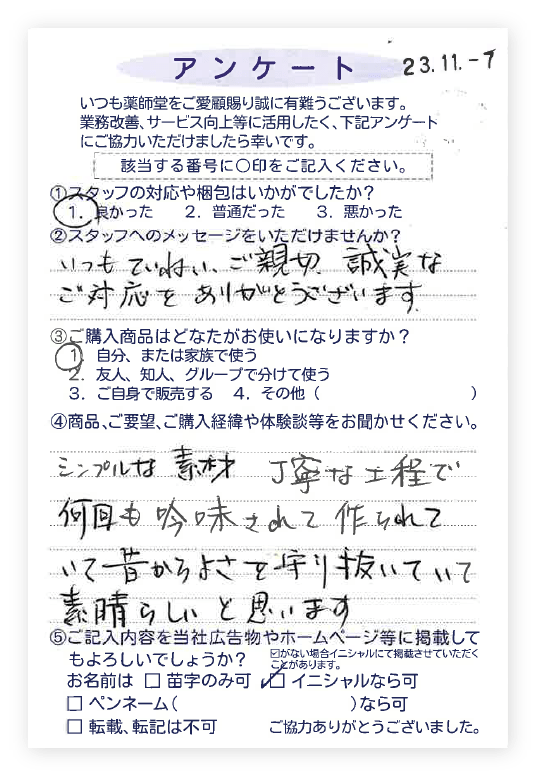 アンケート
23.11.-7
いつも薬師堂をご愛顧賜り誠に有難うございます。
業務改善、サービス向上等に活用したく、下記アンケート
にご協力いただけましたら幸いです。
該当する番号に〇印をご記入ください。
①スタッフの対応や梱包はいかがでしたか?
1. 良かった 2. 普通だった 3. 悪かった
②スタッフへのメッセージをいただけませんか?
いつもていねい、ご親切、誠実な
ご対応をありがとうございます。
③ご購入商品はどなたがお使いになりますか?
1. 自分、または家族で使う
2. 友人、知人、グループで分けて使う
3. ご自身で販売する 4. その他( )
④商品、ご要望、ご購入経緯や体験談等をお聞かせください。
シンプルな素材 丁寧な工程で
何回も吟味されて作られて
いて昔からよさを守り抜いていて
素晴らしいと思います
⑤ご記入内容を当社広告物やホームページ等に掲載して
もよろしいでしょうか?
☑がない場合イニシャルにて掲載させていただく
ことがあります。
お名前は □ 苗字のみ可 ☑ イニシャルなら可
□ ペンネーム( )なら可
□ 転載、転記は不可 ご協力ありがとうございました。